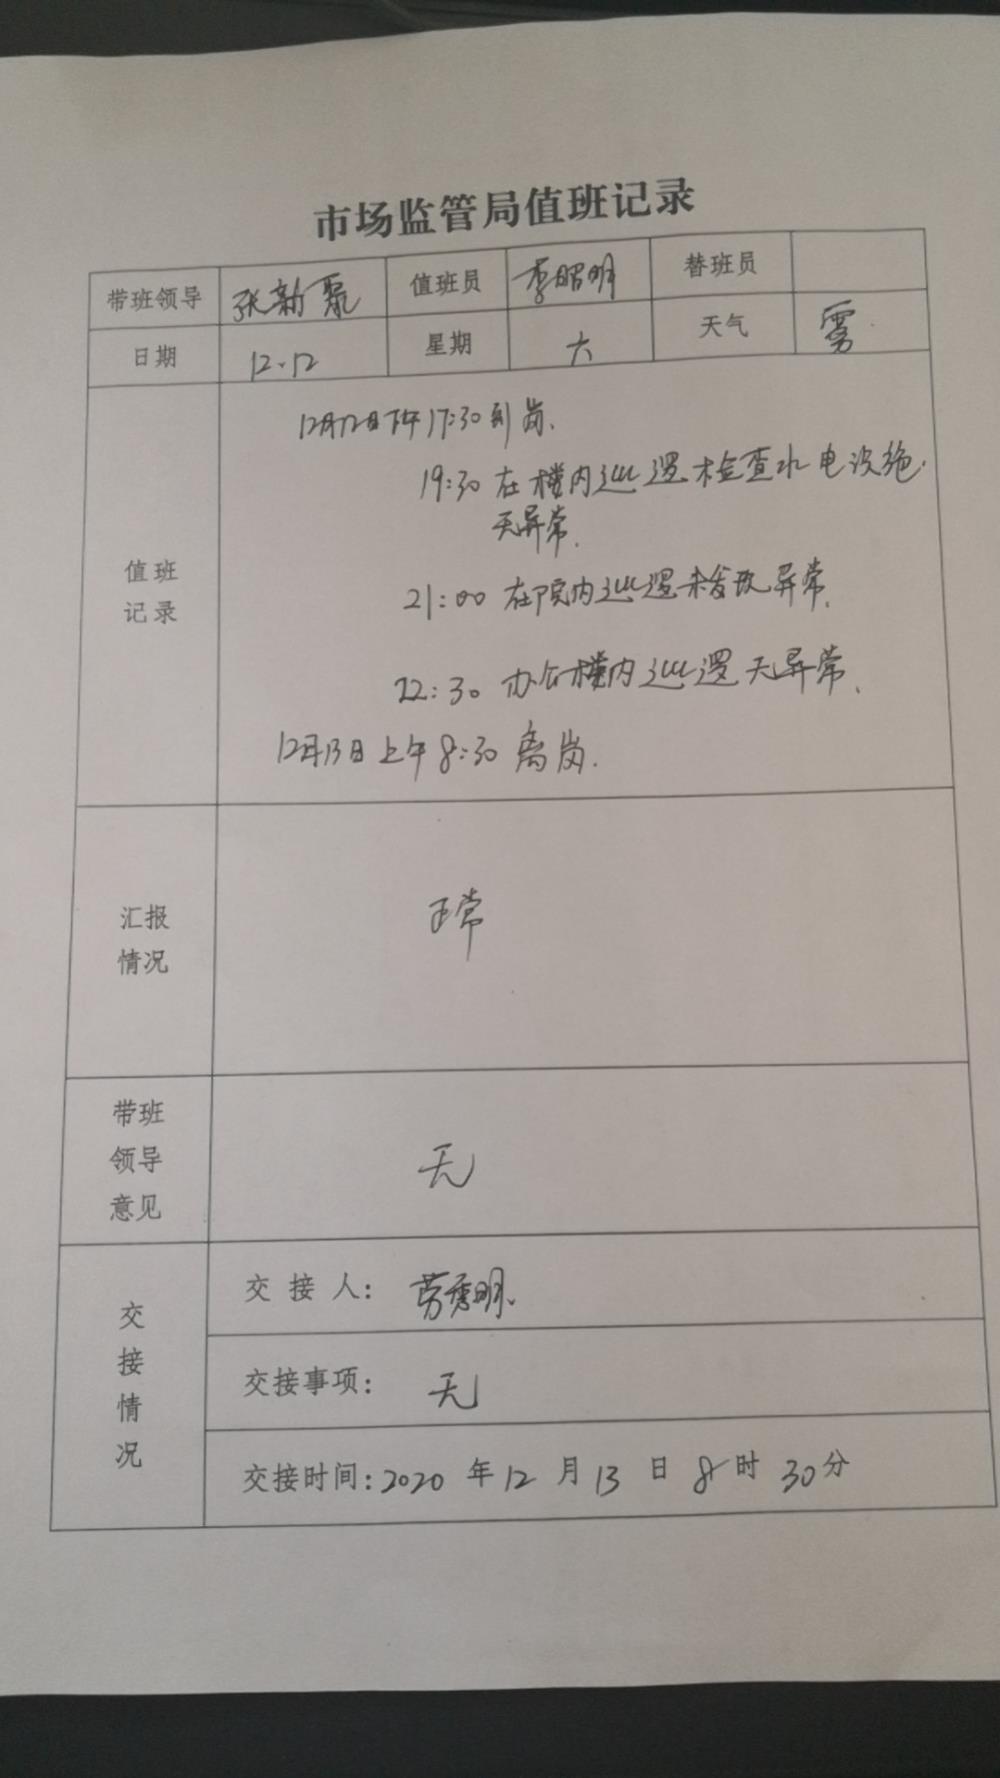 市场监管局值班记录
带班领导 张新 值班员 李昭明 替班员
日期 12.12 星期 六 天气 雾
值班记录
12月12日下午17:30到岗.
19:30 在楼内巡逻检查水电设施.
无异常.
21:00 在院内巡逻未发现异常.
22:30 办公楼内巡逻无异常.
12月13日上午8:30离岗.
汇报情况
正常
带班领导意见
无
交接情况
交接人: 明.
交接事项: 无
交接时间:2020 年12 月13 日 8时 30分